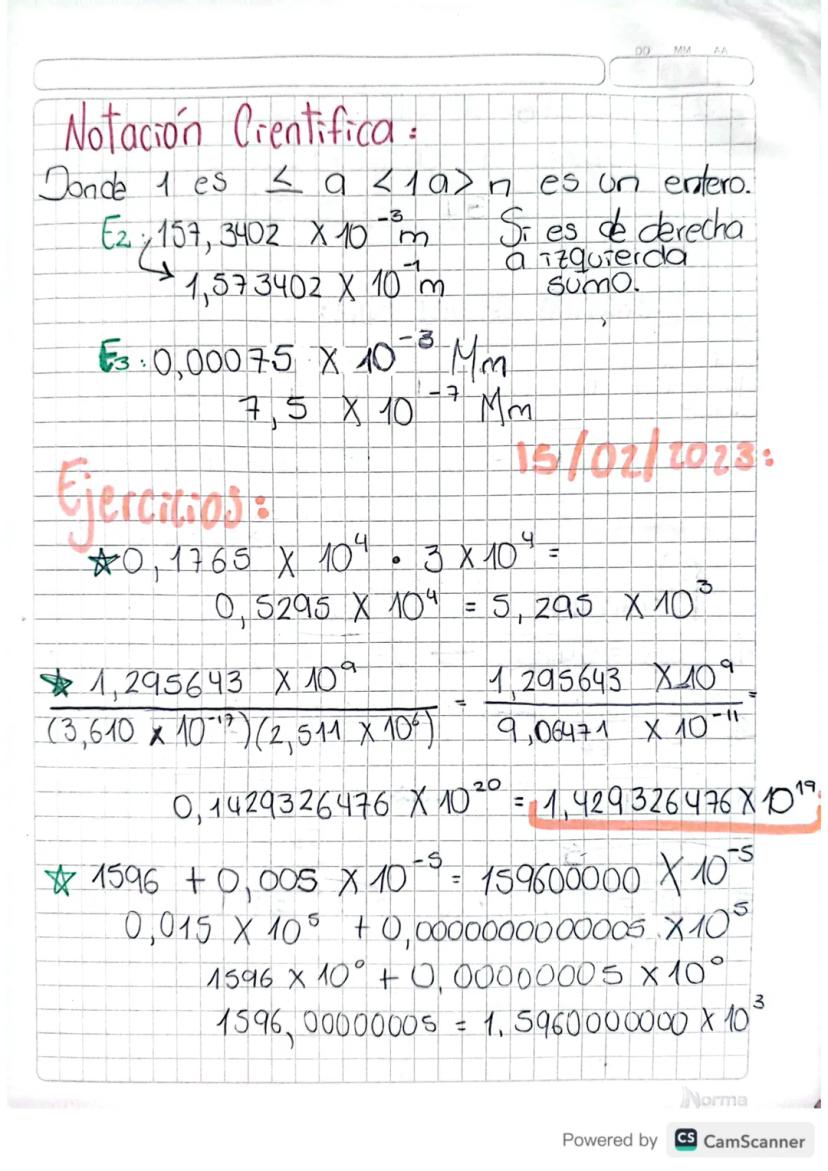 DD MM AA
Notación Cientifica:
Donde 1 es ≤ a < 1a > n es un entero.
E2: 157,3402 X 10⁻³m Si es de derecha
a izquierda
1,573402 X 10⁻¹m sumo.
E3: 0,00075 X 10⁻³ Mm
7,5 X 10⁻⁷ Mm
15/02/2023:
Ejercicios:
☆0,1765 X 10⁴ · 3 X 10⁴ =
0,5295 X 10⁴ = 5,295 X 10³
☆ 1,295643 X 10⁹ = 1,295643 X 10⁹ =
(3,610 x 10⁻¹⁷)(2,511 X 10⁶) 9,06471 X 10⁻¹¹
0,1429326476 X 10²⁰ = 1,429326476 X 10¹⁹
☆ 1596 + 0,005 X 10⁻⁵ = 159600000 X 10⁻⁵
0,015 X 10⁵ + 0,0000000000005 X 10⁵
1596 X 10⁰ + 0,00000005 X 10⁰
1596,00000005 = 1,5960000000 X 10³
Norma
Powered by CS CamScanner